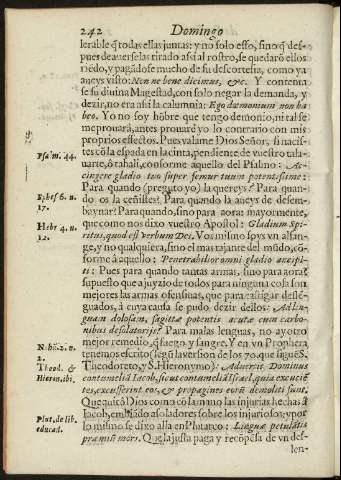 242 Domingo
lerable q̃ todas ellas juntas: y no solo esso, sino q̃ des-
pues de auerselas tirado assi al rostro, se quedarõ ellos
riẽdo, y pagãdose mucho de su descortesia, como ya
aueys visto: Non ne bene dicimus, &c. Y contenta
se su diuina Magestad, con solo negar la demanda, y
dezir, no era assi la calumnia: Ego dæmonium non ha
beo. Yo no soy hõbre que tengo demonio, ni tal se
me prouarà, antes prouarè yo lo contrario con mis
proprios effectos. Pues valame Dios Señor, si nacis-
tes cõ la espada en la cinta, pendiente de vuestro tala-
Psalm. 44.
uarte, ò tahali, conforme aquello del Psalmo: Ac-
cingere gladio tuo super femur tuum potentissime:
Para quando (pregũto yo) la quereys? Para quan-
Ephes. 6. n.
do os la ceñistes? Para quando la aueys de desem-
17.
baynar? Para quando, sino para aora: mayormente,
Hebr. 4. n.
que como nos dixo vuestro Apostol: Gladium Spi-
12.
ritus, quod est verbum Dei. Vos mismo soys vn alfan-
ge, y no qualquiera, sino el mas tajante del mũdo, cõ-
forme à aquello: Penetrabilior omni gladio ancipi-
ti: Pues para quando tantas armas, sino para aora?
supuesto que a juyzio de todos para ninguna cosa son
mejores las armas ofensiuas, que para castigar desle̅-
guados, à cuya causa se pudo dezir dellos: Ad lin-
guam dolosam, sagittæ potentis acutæ cum carbo-
nibus desolatorijs? Para malas lenguas, no ay otro
mejor remedio, q̃ fuego, y sangre. Y en vn Propheta
2.
tenemos escrito (segũ la version de los 70. que sigue S.
Theod. &
Theodoreto, y S. Hieronymo): Aduertit Dominus
Hieron. ibi.
contumeliã Iacob, sicut contumeliã Israel, quia excuciẽ
tes, excusserint eos, & propagines eorũ demoliti sunt.
Que quitã Dios como cosa mano las injurias hechas à
Iacob, embiãdo assoladores sobre los injuriosos; y por
Plut. de lib.
lo mismo se dixo allà en Plutarco: Linguæ petulãtis
educãd.
præmiũ mors. Que la justa paga y recõpesa de vn des-
len-